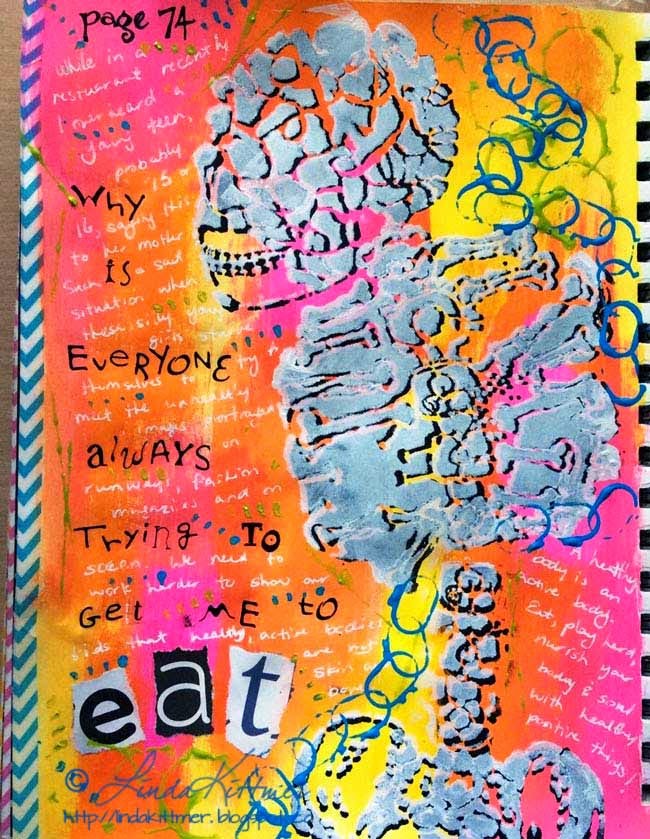 page 74
While in a
restuarant recently
I over heard a
yang teen,
probably
15 or
16, saying this
to her mother
Such a sad
situation when
these silly young
girls starve
themselves to try to
meet the unhealthy
images portrayed
on
runways, fashion
magazies and on
screen. We need to
work harder to show our
kids that healthy, active bodies
are not
skin &
Why
is
EVERYONE
alWAYS
Trying To
GET ME to
eat
A healthy
body is an
active body.
Eat, play hard,
nurish your
body & soul
with healthy
positive things!
© Linda Kittmer
http://lindakittmer.blogspot.ca